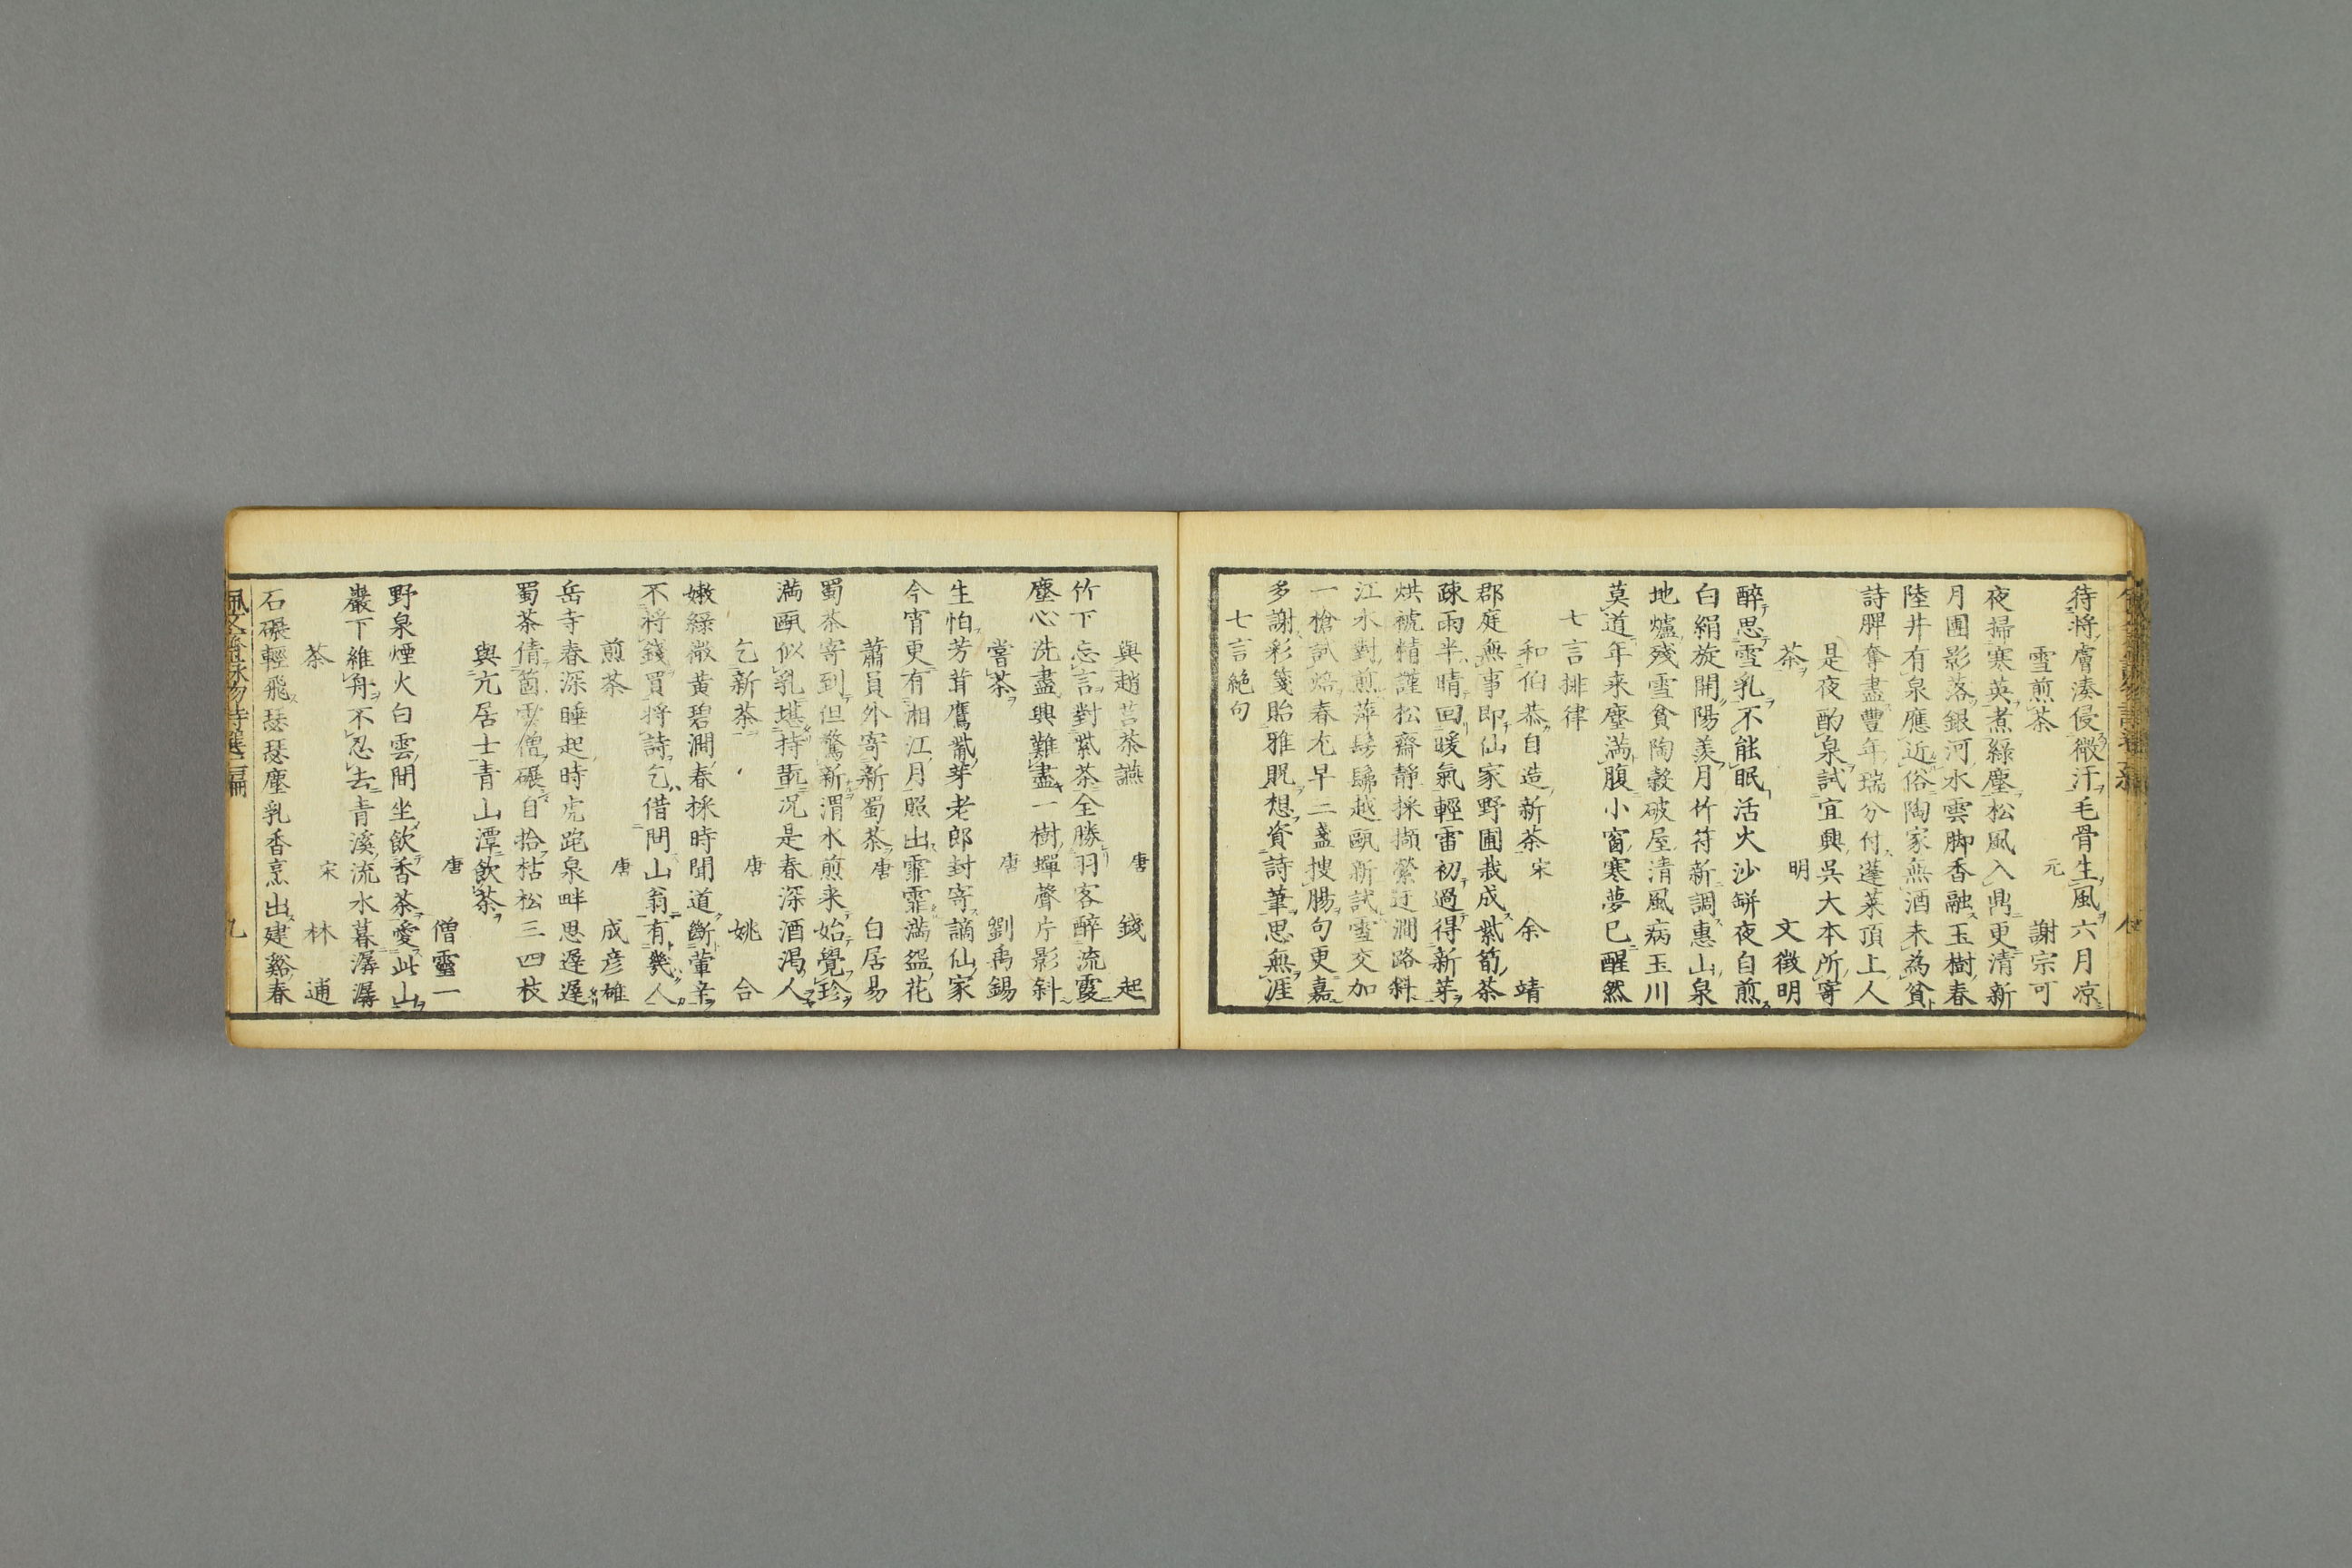 待将膚湊侵微汗毛骨生風六月凉
雪煎茶 元 謝宗可
夜掃寒英煮綠塵松風入鼎更清新
月團影落銀河水雲脚香融玉樹春
陸井有泉應近俗陶家無酒未為貧
詩脾奪盡豐年瑞分付蓬莱頂上人
是夜酌泉試宜興吳大本所寄
茶 明 文徴明
醉思雪乳不能眠活火沙缾夜自煎
白絹旋開陽羨月竹符新調惠山泉
地爐殘雪貧陶穀破屋清風病玉川
莫道年来塵満腹小窗寒夢已醒然
七言排律
和伯恭自造新茶 宋 余靖
郡庭無事即仙家野圃栽成紫筍茶
疎雨半晴回暖氣輕雷初過得新芽
烘褫精謹松齋靜採擷縈迂澗路斜
江水對煎萍髣髴越甌新試雪交加
一槍試焙春尤早二盞搜腸句更嘉
多謝彩箋貽雅貺想資詩筆思無涯
七言絶句
與趙莒茶讌 唐 錢起
竹下忘言對紫茶全勝羽客醉流霞
塵心洗盡興難盡一樹蟬聲片影斜
嘗茶 唐 劉禹錫
生怕芳茸鷹觜芽老郎封寄謫仙家
今宵更有湘江月照出霏霏満盌花
蕭員外寄新蜀茶 唐 白居易
蜀茶寄到但驚新渭水煎来始覺珍
満甌似乳堪持翫况是春深酒渇人
乞新茶 唐 姚合
嫩綠微黄碧澗春採時聞道斷葷辛
不将錢買将詩乞借問山翁有幾人
煎茶 唐 成彦雄
岳寺春深睡起時虎跑泉畔思遅遅
蜀茶倩箇雲僧碾自拾枯松三四枝
與亢居士青山潭飲茶
唐 僧靈一
野泉煙火白雲間坐飲香茶愛此山
巖下維舟不忍去青溪流水暮潺潺
茶 宋 林逋
石碾輕飛瑟瑟塵乳香烹出建谿春
佩文齋詠物詩選二編 九